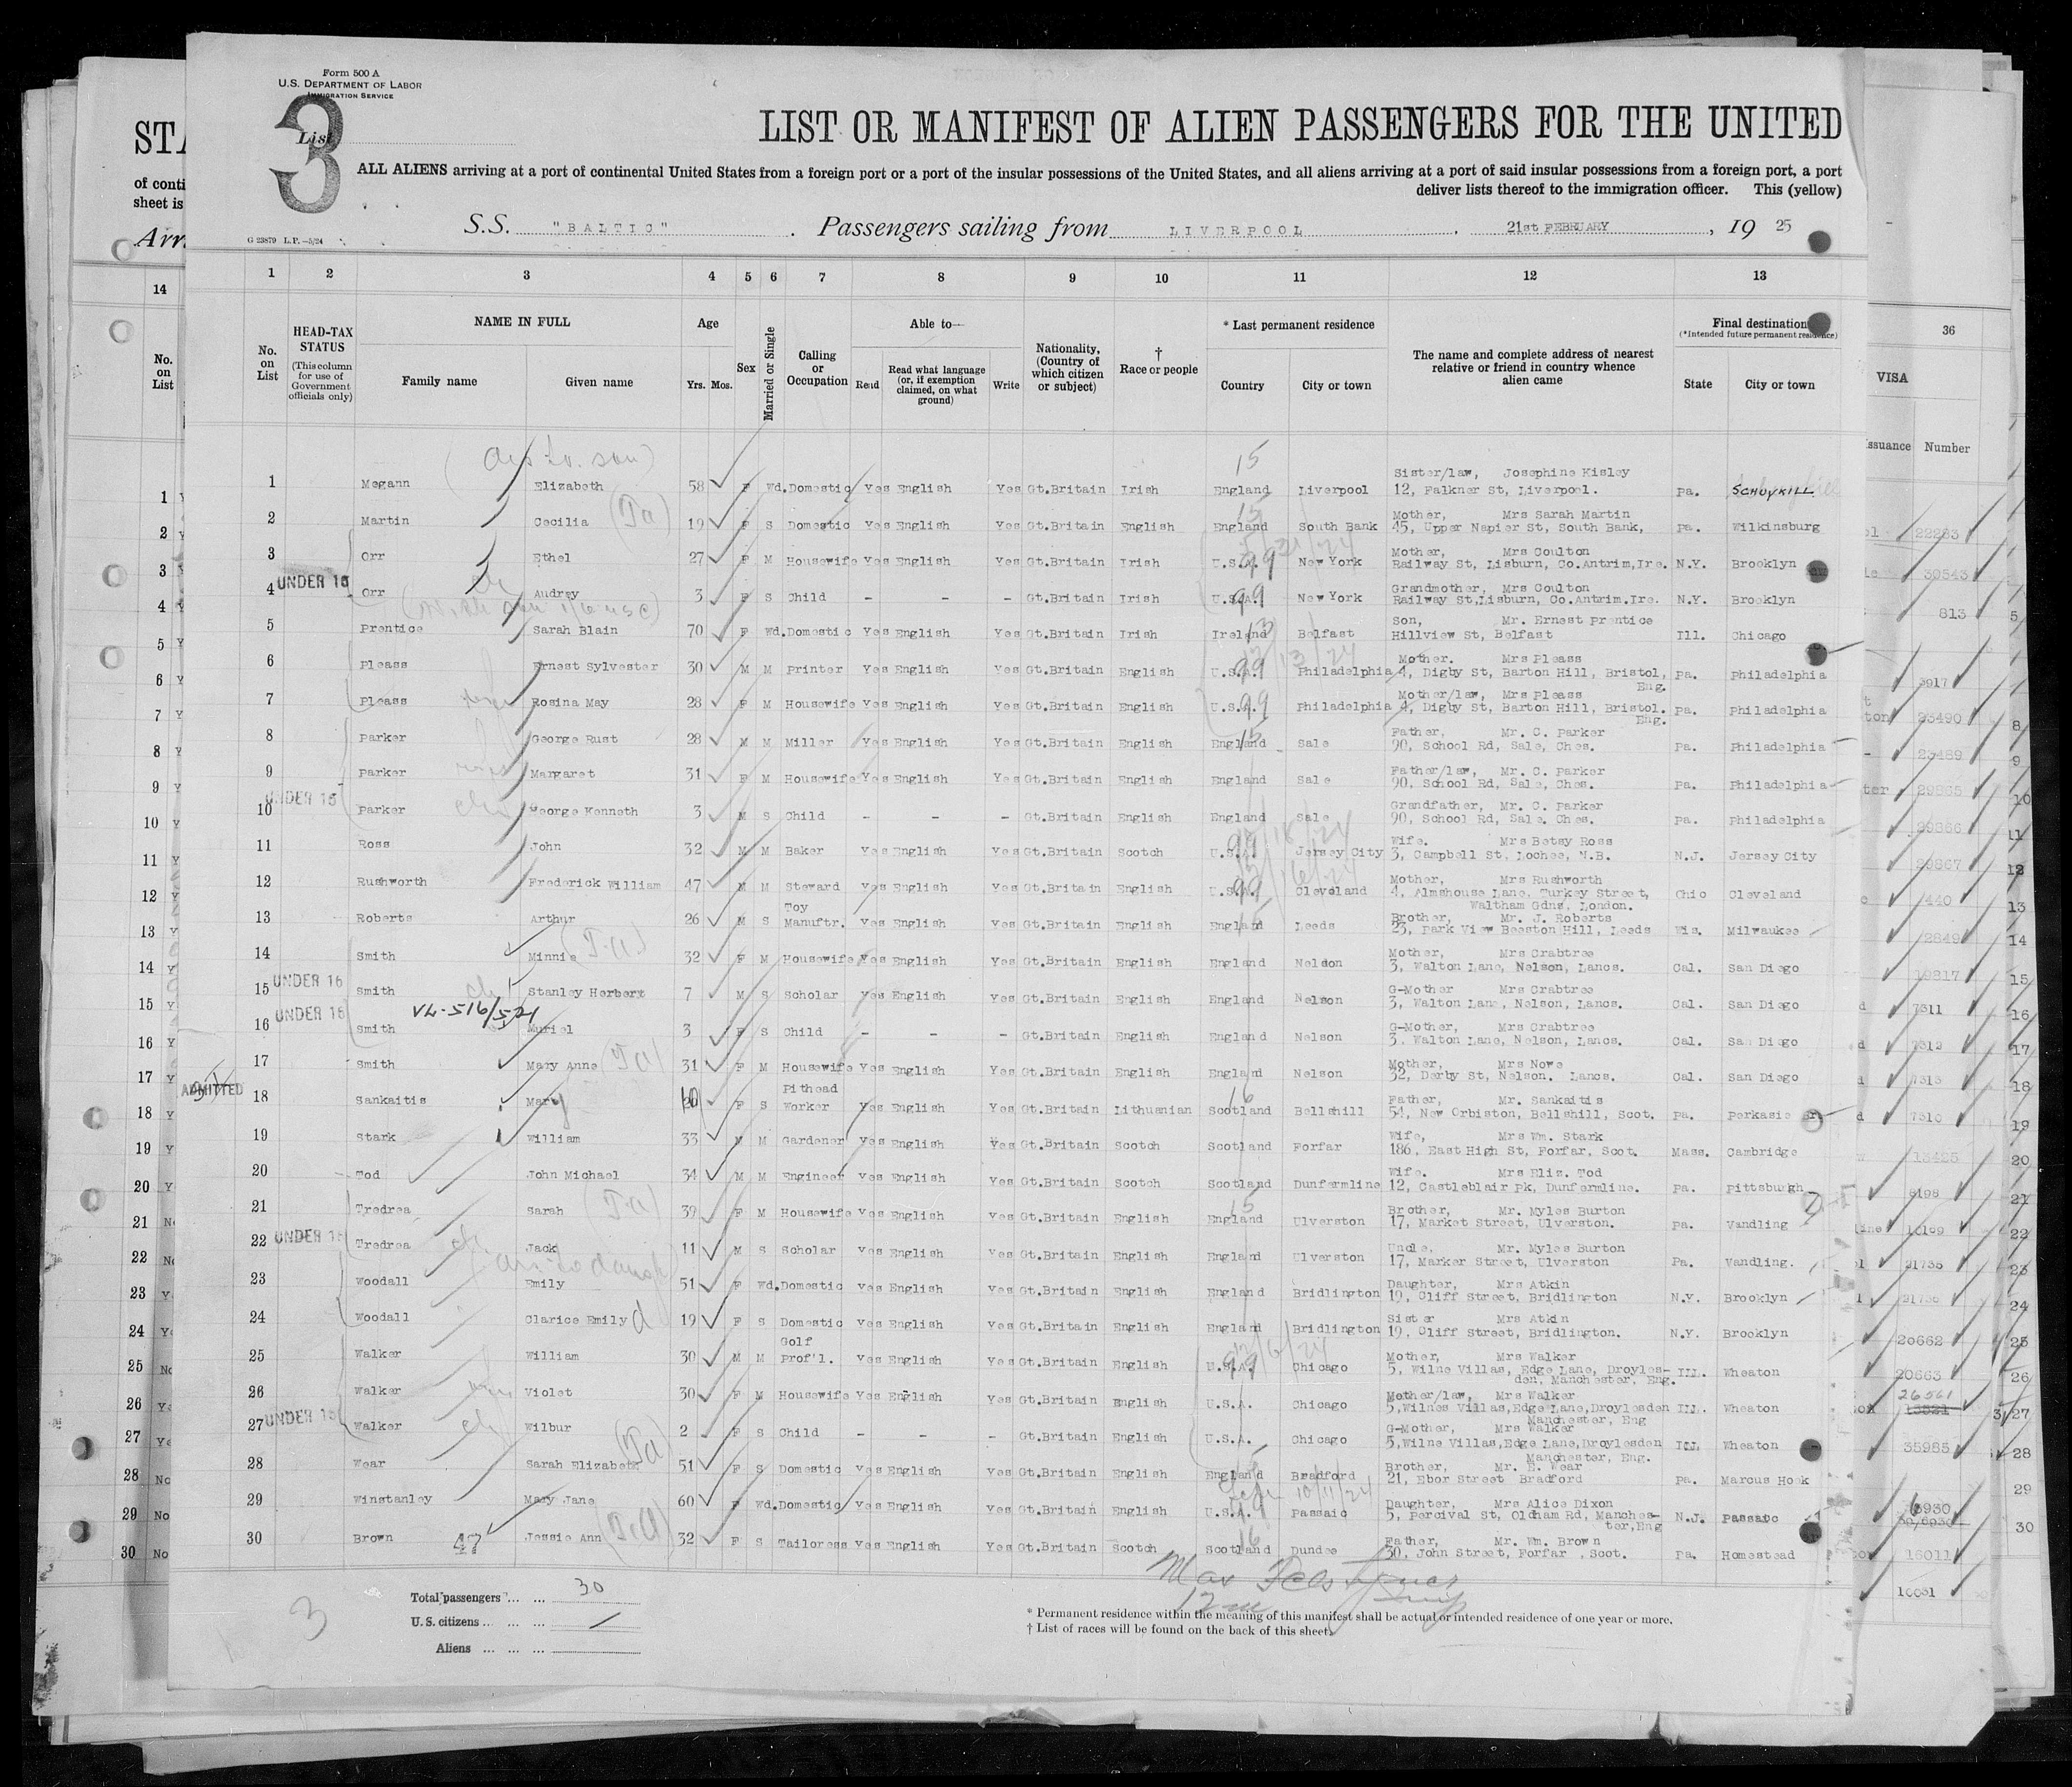 Form 500 A
U.S. DEPARTMENT OF LABOR
IMMIGRATION SERVICE
List 3
LIST OR MANIFEST OF ALIEN PASSENGERS FOR THE UNITED
ALL ALIENS arriving at a port of continental United States from a foreign port or a port of the insular possessions of the United States, and all aliens arriving at a port of said insular possessions from a foreign port, a port
deliver lists thereof to the immigration officer. This (yellow)
S.S. "BALTIC" . Passengers sailing from LIVERPOOL , 21st FEBRUARY , 19 25
G 23879 L.P.—5/24
1 2 3 4 5 6 7 8 9 10 11 12 13
No. on List
HEAD-TAX STATUS
(This column for use of Government officials only)
NAME IN FULL
Family name Given name
Age
Yrs. Mos.
Sex
Married or Single
Calling or Occupation
Able to—
Read
Read what language (or, if exemption claimed, on what ground)
Write
Nationality, (Country of which citizen or subject)
† Race or people
* Last permanent residence
Country City or town
The name and complete address of nearest relative or friend in country whence alien came
Final destination
(*Intended future permanent residence)
State City or town
1 Megann Elizabeth 58 F Wd. Domestic Yes English Yes Gt.Britain Irish England Liverpool Sister/law, Josephine Kisley 12, Falkner St, Liverpool. Pa. SCHUYKILL
2 Martin Cecilia 19 F S Domestic Yes English Yes Gt.Britain English England South Bank Mother, Mrs Sarah Martin 45, Upper Napier St, South Bank, Pa. Wilkinsburg
3 Orr Ethel 27 F M Housewife Yes English Yes Gt.Britain Irish U.S.A. New York Mother, Mrs Coulton Railway St, Lisburn, Co.Antrim,Ire. N.Y. Brooklyn
UNDER 16
4 Orr Audrey 3 F S Child - - - Gt.Britain Irish U.S.A. New York Grandmother, Mrs Coulton Railway St,Lisburn, Co.Antrim.Ire. N.Y. Brooklyn
5 Prentice Sarah Blain 70 F Wd. Domestic Yes English Yes Gt.Britain Irish Ireland Belfast Son, Mr. Ernest Prentice Hillview St, Belfast Ill. Chicago
6 Pleass Ernest Sylvester 30 M M Printer Yes English Yes Gt.Britain English U.S.A. Philadelphia Mother. Mrs Pleass 4, Digby St, Barton Hill, Bristol, Eng. Pa. Philadelphia
7 Pleass Rosina May 28 F M Housewife Yes English Yes Gt.Britain English U.S.A. Philadelphia Mother/law, Mrs Pleass 4, Digby St, Barton Hill, Bristol. Eng. Pa. Philadelphia
8 Parker George Rust 28 M M Miller Yes English Yes Gt.Britain English England Sale Father, Mr. C. Parker 90, School Rd, Sale, Ches. Pa. Philadelphia
9 Parker Margaret 31 F M Housewife Yes English Yes Gt.Britain English England Sale Father/law, Mr. C. Parker 90, School Rd, Sale, Ches. Pa. Philadelphia
UNDER 16
10 Parker George Kenneth 3 M S Child - - - Gt.Britain English England Sale Grandfather, Mr. C. Parker 90, School Rd, Sale. Ches. Pa. Philadelphia
11 Ross John 32 M M Baker Yes English Yes Gt.Britain Scotch U.S.A. Jersey City Wife. Mrs Betsy Ross 3, Campbell St, Lochee, N.B. N.J. Jersey City
12 Rushworth Frederick William 47 M M Steward Yes English Yes Gt.Britain English U.S.A. Cleveland Mother, Mrs Rushworth 4, Almshouse Lane, Turkey Street, Waltham Gdns, London. Ohio Cleveland
13 Roberts Arthur 26 M S Toy Manuftr. Yes English Yes Gt.Britain English England Leeds Brother, Mr. J. Roberts 23, Park View Beeston Hill, Leeds Wis. Milwaukee
14 Smith Minnie 32 F M Housewife Yes English Yes Gt.Britain English England Neldon Mother, Mrs Crabtree 3, Walton Lane, Nelson, Lancs. Cal. San Diego
UNDER 16
15 Smith Stanley Herbert 7 M S Scholar Yes English Yes Gt.Britain English England Nelson G-Mother Mrs Crabtree 3, Walton Lane, Nelson, Lancs. Cal. San Diego
UNDER 16 VL-516/521
16 Smith Muriel 3 F S Child - - - Gt.Britain English England Nelson G-Mother, Mrs Crabtree 3. Walton Lane, Nelson, Lancs. Cal. San Diego
17 Smith Mary Anne 31 F M Housewife Yes English Yes Gt.Britain English England Nelson Mother, Mrs Nowe 32, Derby St, Nelson. Lancs. Cal. San Diego
ADMITTED
18 Sankaitis Mary F S Pithead Worker Yes English Yes Gt.Britain Lithuanian Scotland Bellshill Father, Mr. Sankaitis 54, New Orbiston, Bellshill, Scot. Pa. Perkasie
19 Stark William 33 M M Gardener Yes English Yes Gt.Britain Scotch Scotland Forfar Wife, Mrs Wm. Stark 186, East High St, Forfar, Scot. Mass. Cambridge
20 Tod John Michael 34 M M Engineer Yes English Yes Gt.Britain Scotch Scotland Dunfermline Wife. Mrs Eliz. Tod 12, Castleblair Pk, Dunfermline. Pa. Pittsburgh
21 Tredrea Sarah 39 F M Housewife Yes English Yes Gt.Britain English England Ulverston Brother, Mr. Myles Burton 17, Market Street, Ulverston. Pa. Vandling
UNDER 16
22 Tredrea Jack 11 M S Scholar Yes English Yes Gt.Britain English England Ulverston Uncle, Mr. Myles Burton 17, Marker Street, Ulverston Pa. Vandling.
23 Woodall Emily 51 F Wd. Domestic Yes English Yes Gt.Britain English England Bridlington Daughter, Mrs Atkin 19, Cliff Street, Bridlington N.Y. Brooklyn
24 Woodall Clarice Emily 19 F S Domestic Yes English Yes Gt.Britain English England Bridlington Sister Mrs Atkin 19, Cliff Street, Bridlington. N.Y. Brooklyn
25 Walker William 30 M M Golf Prof'l. Yes English Yes Gt.Britain English U.S.A. Chicago Mother, Mrs Walker 5, Wilne Villas, Edge Lane, Droylesden, Manchester, Eng. Ill. Wheaton
26 Walker Violet 30 F M Housewife Yes English Yes Gt.Britain English U.S.A. Chicago Mother/law, Mrs Walker 5,Wilnes Villas,Edge Lane,Droylesden Manchester, Eng Ill. Wheaton
UNDER 16
27 Walker Wilbur 2 F S Child - - - Gt.Britain English U.S.A. Chicago G-Mother, Mrs Walker 5,Wilne Villas,Edge Lane,Droylesden Manchester, Eng. Ill. Wheaton
28 Wear Sarah Elizabeth 51 F S Domestic Yes English Yes Gt.Britain English England Bradford Brother, Mr. E. Wear 21, Ebor Street Bradford Pa. Marcus Hook
29 Winstanley Mary Jane 60 F Wd. Domestic Yes English Yes Gt.Britain English U.S.A. Passaic Daughter, Mrs Alice Dixon 5, Percival St, Oldham Rd, Manchester,Eng N.J. Passaic
30 Brown 47 Jessie Ann 32 F S Tailoress Yes English Yes Gt.Britain Scotch Scotland Dundee Father, Mr. Wm. Brown 30, John Street, Forfar , Scot. Pa. Homestead
Total passengers ... ... 30
U.S. citizens ... ... ...
Aliens ... ... ...
3
* Permanent residence within the meaning of this manifest shall be actual or intended residence of one year or more.
† List of races will be found on the back of this sheet.
STA
of conti
sheet is
Arri
14
No. on List
36
VISA
Issuance Number
22263
30543
813
3917
23490
23489
29865
29866
29867
440
2849
19217
7311
7312
7313
7310
13425
6198
10199
21735
21736
20662
20663
26561
35985
16011
16031